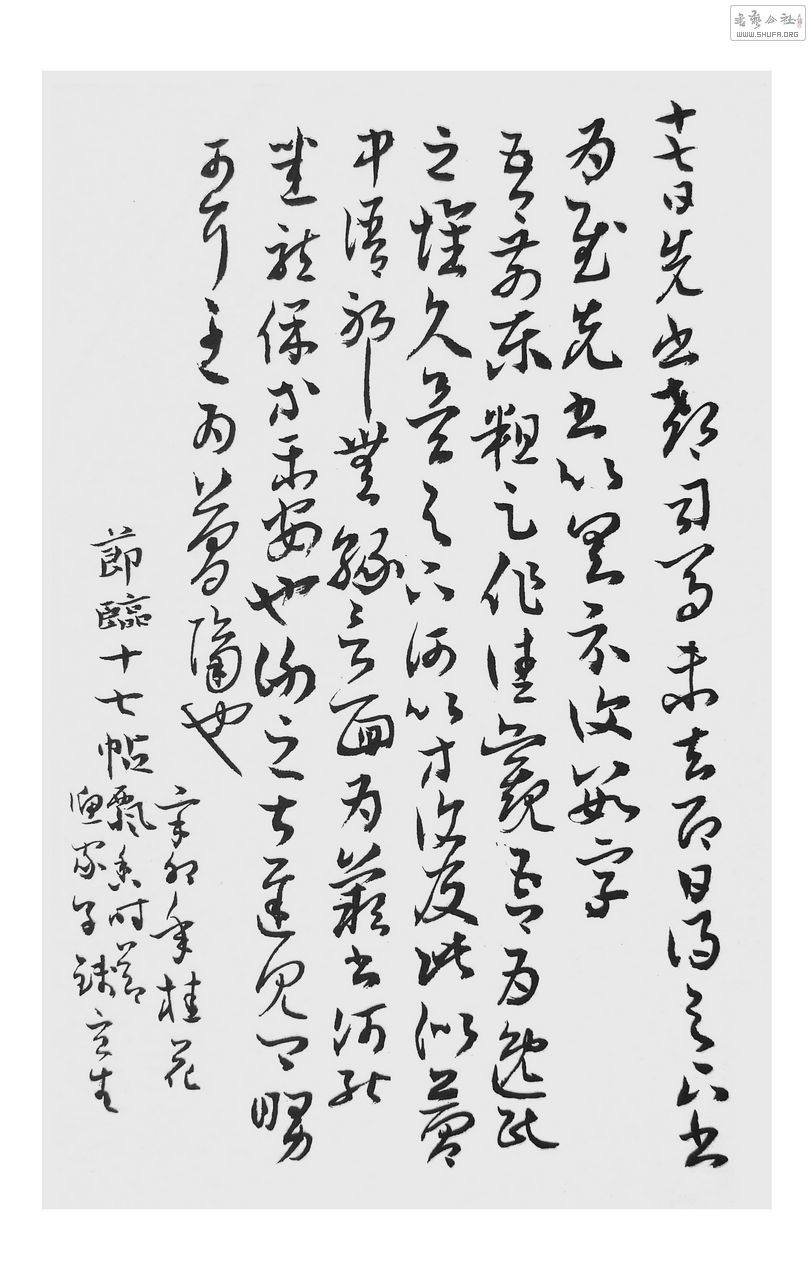 書藝公社
WWW.SHUFA.ORG
十七日先書郗司馬未去即日得足下書
為慰先書以具示復數字
吾前東粗足作佳觀吾為逸民
之懷久矣足下何以方復及此似夢
中語耶無緣言面為歎書何能
悉龍保等平安也謝之甚遲見卿舅
可耳至為簡隔也
節臨十七帖
辛卯年桂花
飄香時節
漁家子